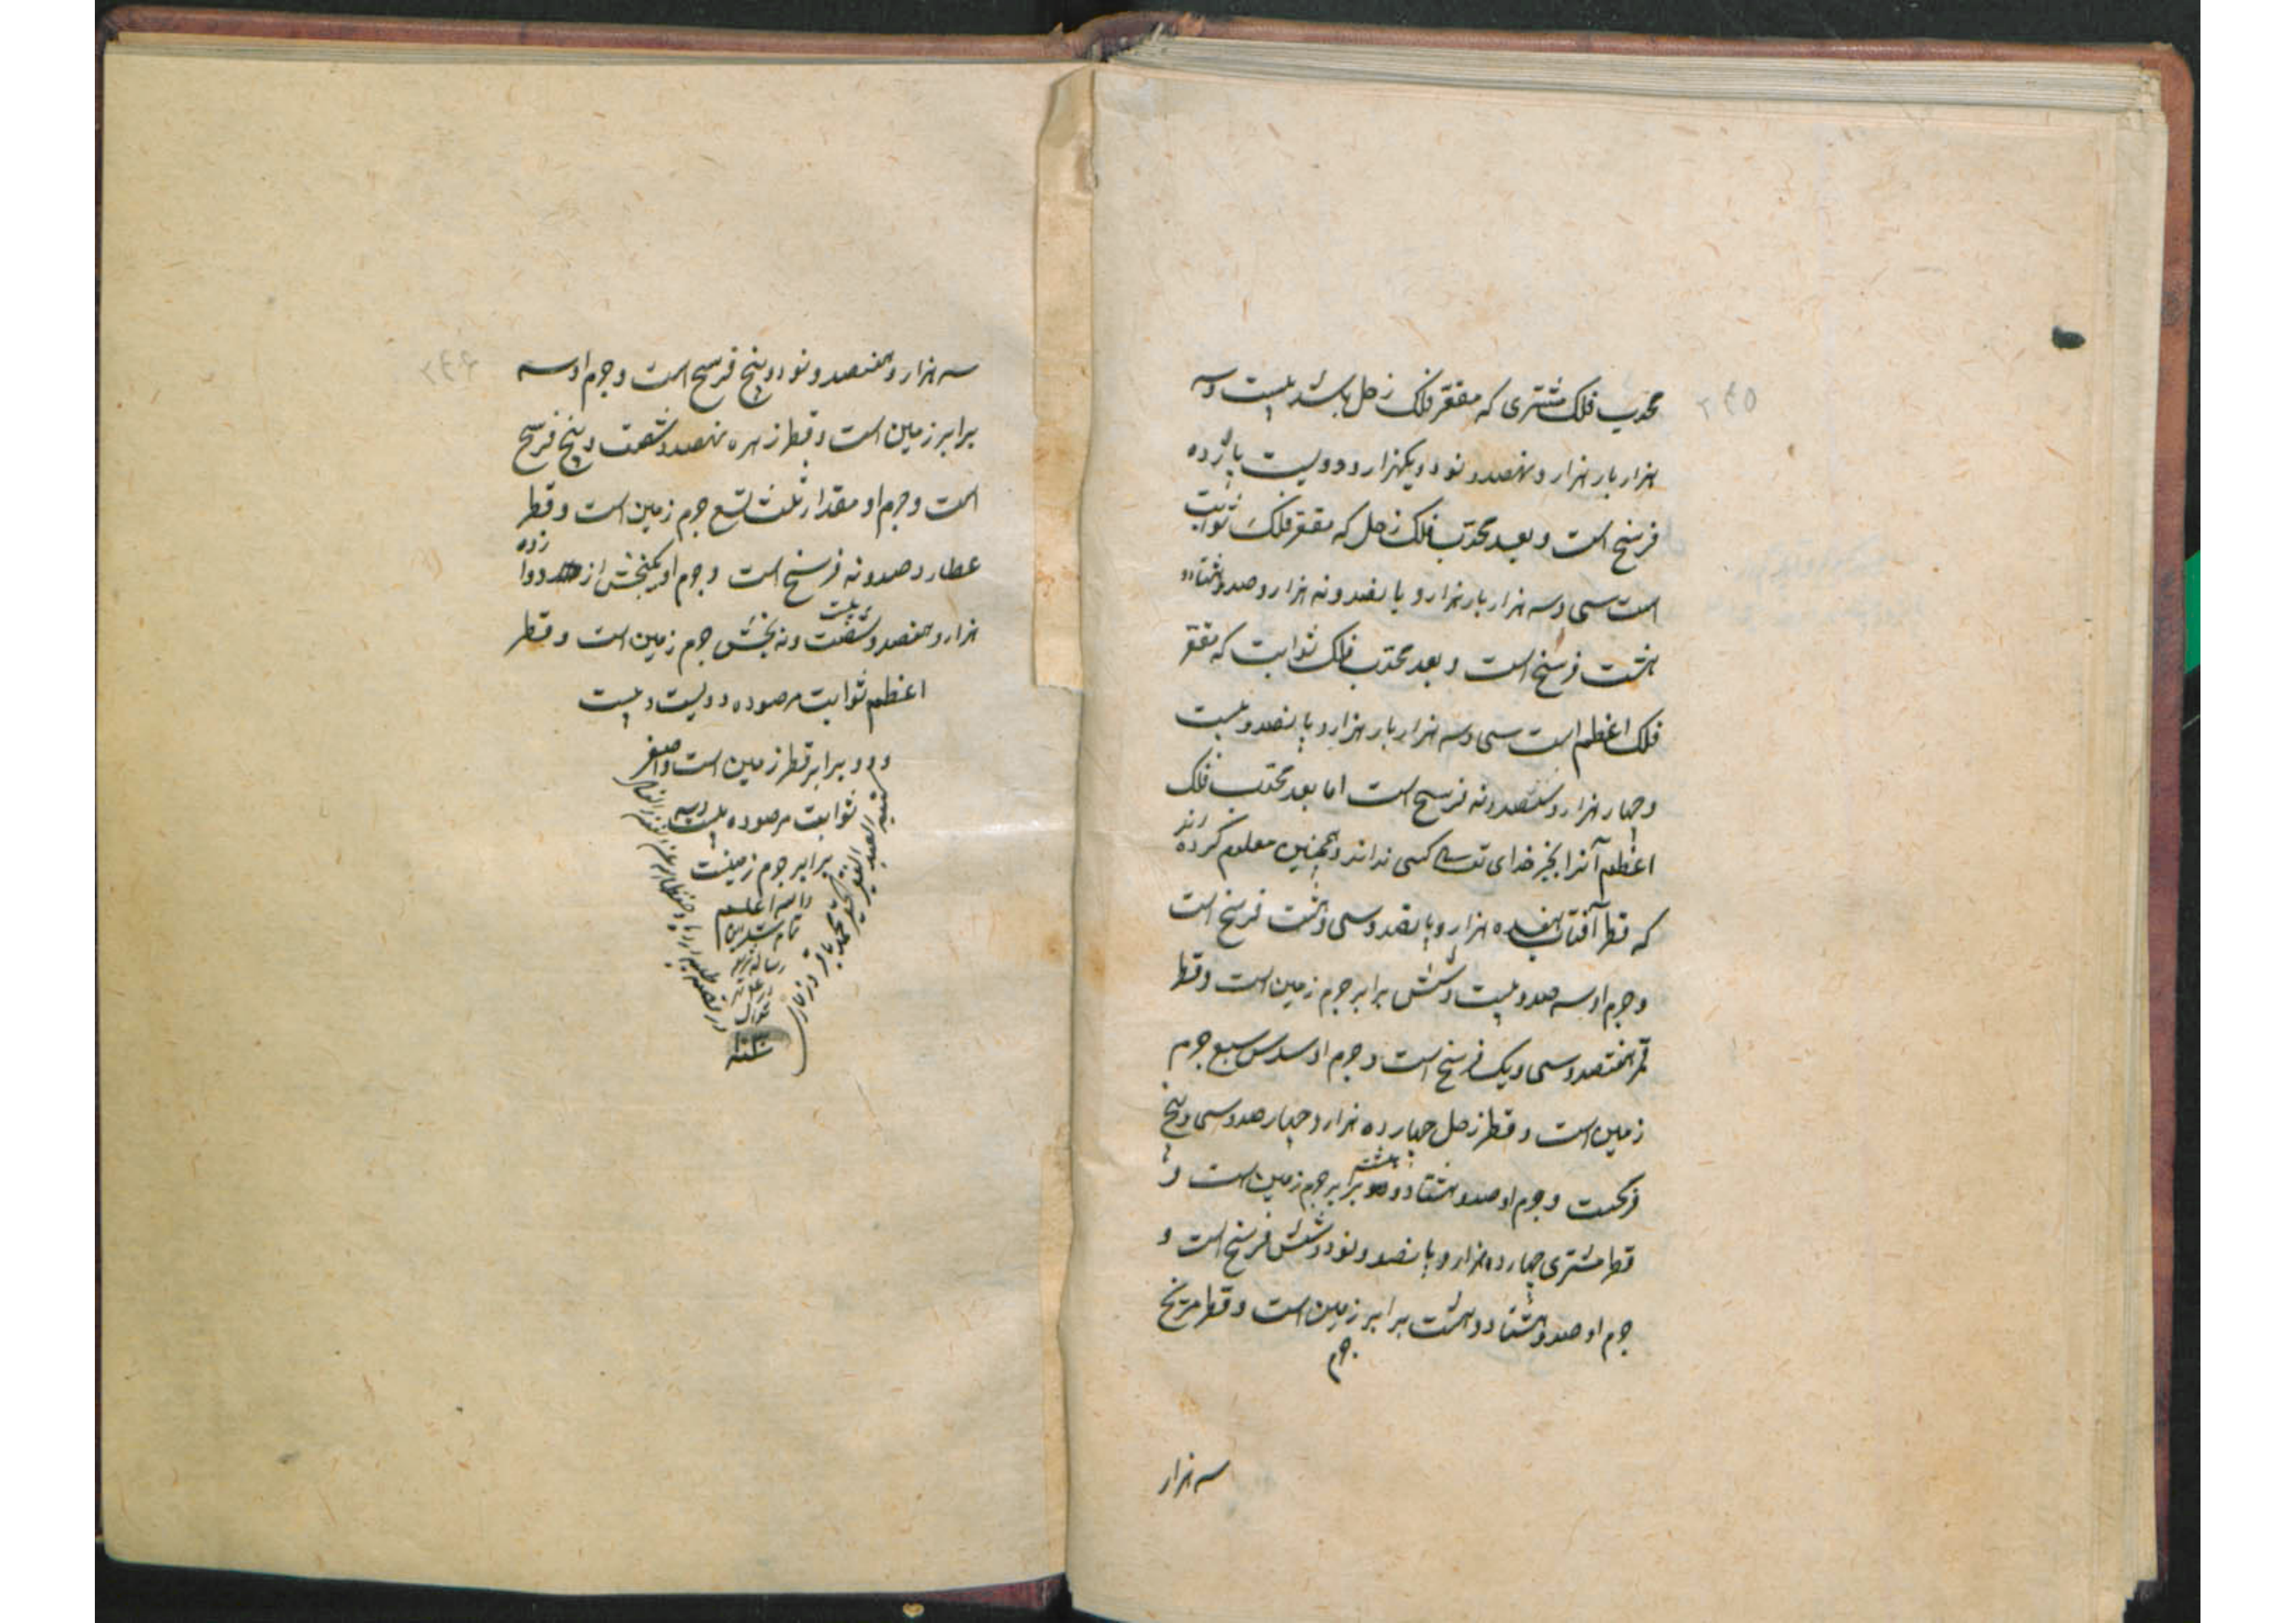 ۲۴۵
محدب فلک مشتری که مقعر فلک زحل باشد بیست و سه
هزار بار هزار و نهصد و نود و یکهزار و دویست یازده
فرسخ است و بعد محدب فلک زحل که مقعر فلک ثوابت
است سی و سه هزار بار هزار و پانصد و نه هزار و صد و هشتاد و
هشت فرسخ است و بعد محدب فلک ثوابت که مقعر
فلک اعظم است سی و سه هزار بار هزار و پانصد و بیست
و چهار هزار و ششصد و نه فرسخ است اما بعد محدب فلک
اعظم آنرا بجز خدای تعالی کسی نداند و همچنین معلوم کرده اند
که قطر آفتاب هفده هزار و پانصد و سی و هشت فرسخ است
و جرم او سه صد و بیست و شش برابر جرم زمین است و قطر
قمر هفتصد و سی و یک فرسخ است و جرم او سدس سبع جرم
زمین است و قطر زحل چهارده هزار و چهار صد و سی و پنج
فرسخست و جرم او صد و هشتاد و برابر جرم زمین است و
قطر مشتری چهارده هزار و پانصد و نود و شش فرسخ است و
جرم او صد و هشتاد و هشت برابر زمین است و قطر مریخ
جرم
سه هزار
۲۴۶
سه هزار و هفتصد و نود و پنج فرسخ است و جرم او سه
برابر زمین است و قطر زهره نهصد و شصت و پنج فرسخ
است و جرم او مقدار ثلث تسع جرم زمین است و قطر
عطارد صد و نه فرسخ است و جرم او یکبخش از دوازده
هزار و هفتصد و شصت و نه بخش جرم زمین است و قطر
اعظم ثوابت مرصوده دویست و بیست
و دو برابر قطر زمین است و اصغر
ثوابت مرصوده بیست و سه
برابر جرم زمینست
والله اعلم
تمام شد این
رساله
کتبه العبد الفقیر الحقیر محمد باقر